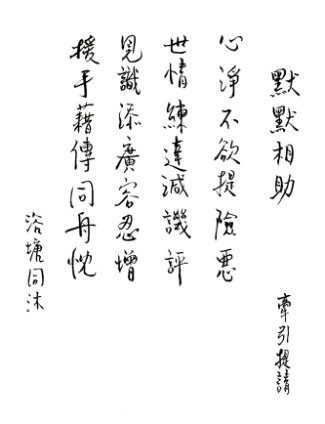 默默相助
牽引提請
心淨不欲提險惡
世情練達減譏評
見識添廣容忍增
援手藉傳同舟忱
浴塘同沐